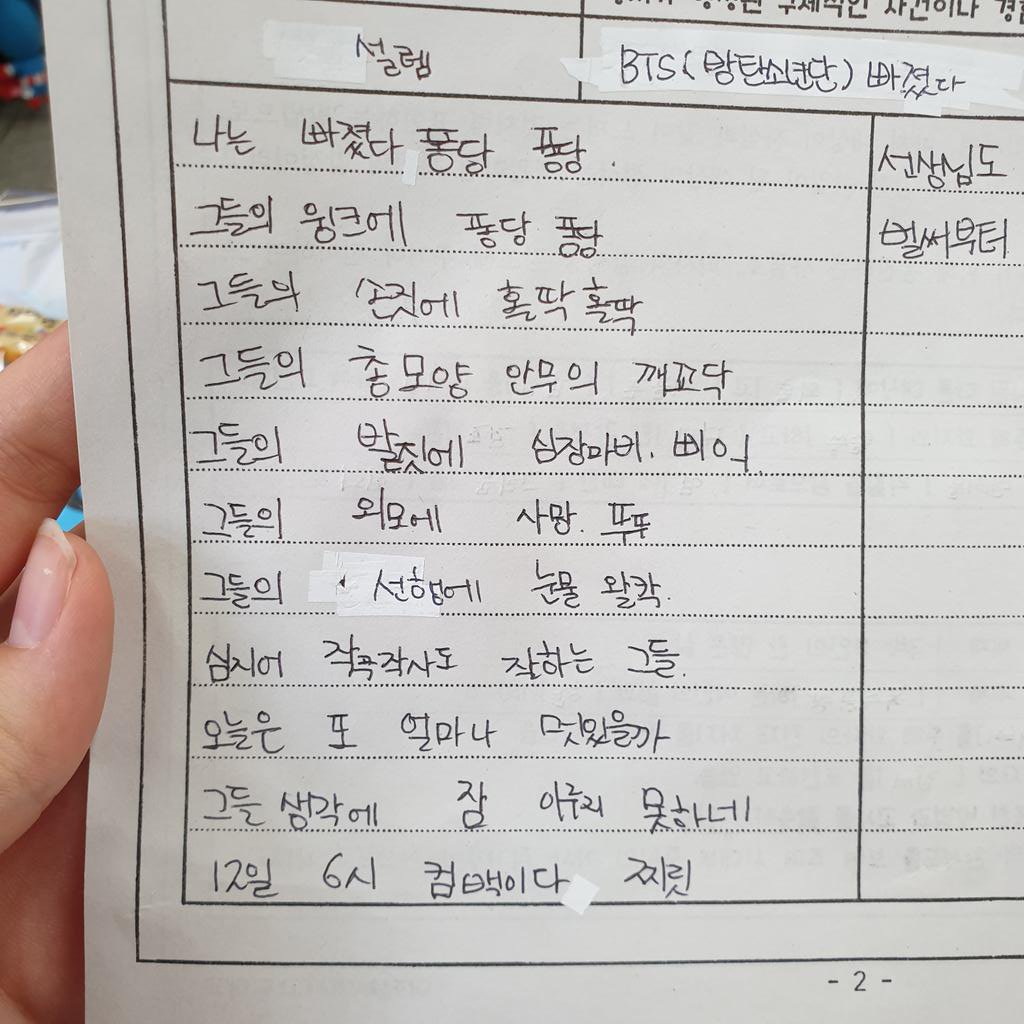 구체적인 사건이나
설렘
BTS(방탄소년단) 빠졌다
나는 빠졌다 퐁당 퐁당.
그들의 윙크에 퐁당 퐁당
그들의 손짓에 홀딱 홀딱
그들의 총모양 안무의 깨꼬닥
그들의 발짓에 심장마비. 삐익
그들의 외모에 사망. 푸푸
그들의 선행에 눈물 왈칵.
심지어 작곡작사도 잘하는 그들.
오늘은 또 얼마나 멋있을까
그들 생각에 잠 이루지 못하네
12일 6시 컴백이다 찌릿
선생님도
벌써부터
- 2 -